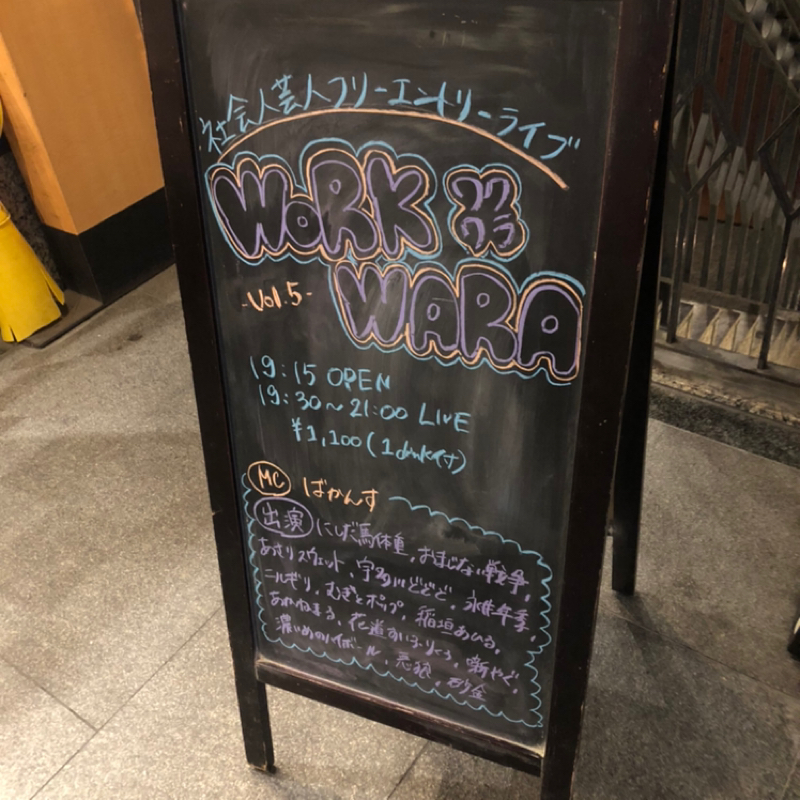 社会人芸人フリーエントリーライブ
WORK ワクワラ
-Vol.5-
WARA
19:15 OPEN
19:30〜21:00 LIVE
¥1,100(1drink付)
MC ばかんす
出演 にしだ馬体重、おまじない戦争、
あさりスウェット、宇多川どどど、永雄午季、
ニルギリ、むぎとポップ、稲垣あひる、
あかねまる、花道すいまりくろ、噺やぐ、
濃いめのハイボール、悪狼、砂金